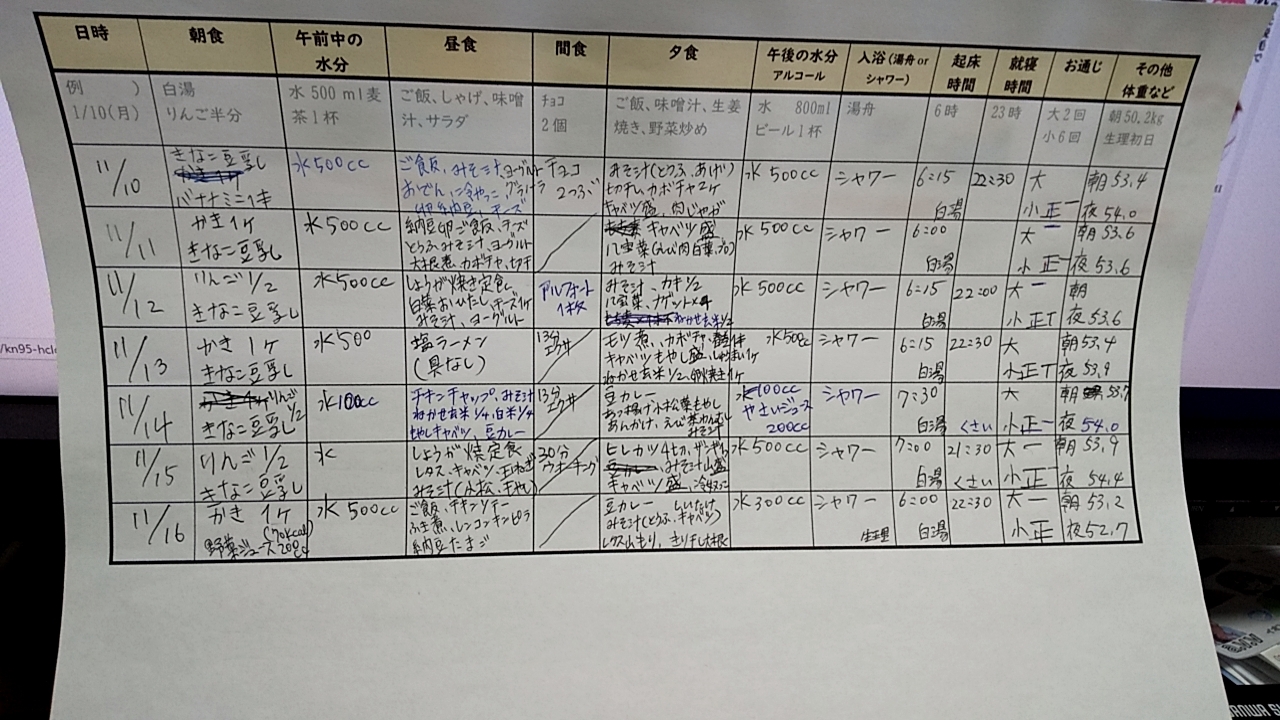 日時 朝食 午前中の水分 昼食 間食 夕食 午後の水分 アルコール 入浴(湯舟orシャワー) 起床時間 就寝時間 お通じ その他 体重など
例 ) 白湯 水500ml麦 ご飯、しゃげ、味噌 チョコ ご飯、味噌汁、生姜 水 800ml 湯舟 6時 23時 大2回 朝50.2kg
1/10(月) りんご半分 茶1杯 汁、サラダ 2個 焼き、野菜炒め ビール1杯 小6回 生理初日
11/10 きなこ豆乳 水500cc ご飯、みそ汁、ヨーグルト チョコ みそ汁(とうふ、あげ) 水500cc シャワー 6:15 22:30 大 朝53.4
おでん、冷やっこ 2つぶ 切干し、カボチャ2ケ
バナナミニ1本 チーズ キャベツ盛、肉じゃが 白湯 小正一 夜54.0
11/11 かき1ケ 水500cc 納豆卵ご飯、チーズ キャベツ盛 水500cc シャワー 6:00 大一 朝53.6
きなこ豆乳 とうふみそ汁、ヨーグルト 八宝菜
大根煮、カボチャ、切干 みそ汁 白湯 小正一 夜53.6
11/12 りんご1/2 水500cc しょうが焼き定食 アルフォート みそ汁、カキ1/2 水500cc シャワー 6:15 22:00 大一 朝
きなこ豆乳 白菜おひたし、チーズ1ケ 1枚 八宝菜、ナゲット×4
みそ汁、ヨーグルト ねかせ玄米1/2 白湯 小正T 夜53.6
11/13 かき1ケ 水500 塩ラーメン 13分 モツ煮、カボチャ 水500cc シャワー 6:15 22:30 大 朝53.4
きなこ豆乳 (具なし) エクサ キャベツもやし盛、しゅうまい1ケ
ねかせ玄米1/2、卵焼き1ケ 白湯 小正T 夜53.9
11/14 りんご1/2 水100cc チキンチャップ、みそ汁 13分 豆カレー 水100cc シャワー 7:30 大 朝53.7
きなこ豆乳 ねかせ玄米1/4、白米1/4 エクサ あつ揚げ小松菜もやし やさいジュース
もやしキャベツ、豆カレー あんかけ、えび みそ汁 200cc 白湯 くさい 小正一 夜54.0
11/15 りんご1/2 水 しょうが焼定食 30分 ヒレカツ4切、ザンギ 水500cc シャワー 7:00 21:30 大一 朝53.9
きなこ豆乳 レタス、キャベツ、玉ねぎ ウォーキング みそ汁
みそ汁(小松、もやし) キャベツ盛、冷奴 白湯 くさい 小正 夜54.4
11/16 かき1ケ 水500cc ご飯、チキンソテー 豆カレー しいたけ 水300cc シャワー 6:00 22:30 大一 朝53.2
野菜ジュース(70kcal) 200cc ふき煮、レンコンキンピラ みそ汁(とうふ、キャベツ)
納豆たまご レタス山もり、きり干し大根 生理 白湯 小正 夜52.7
/kn95-hcl